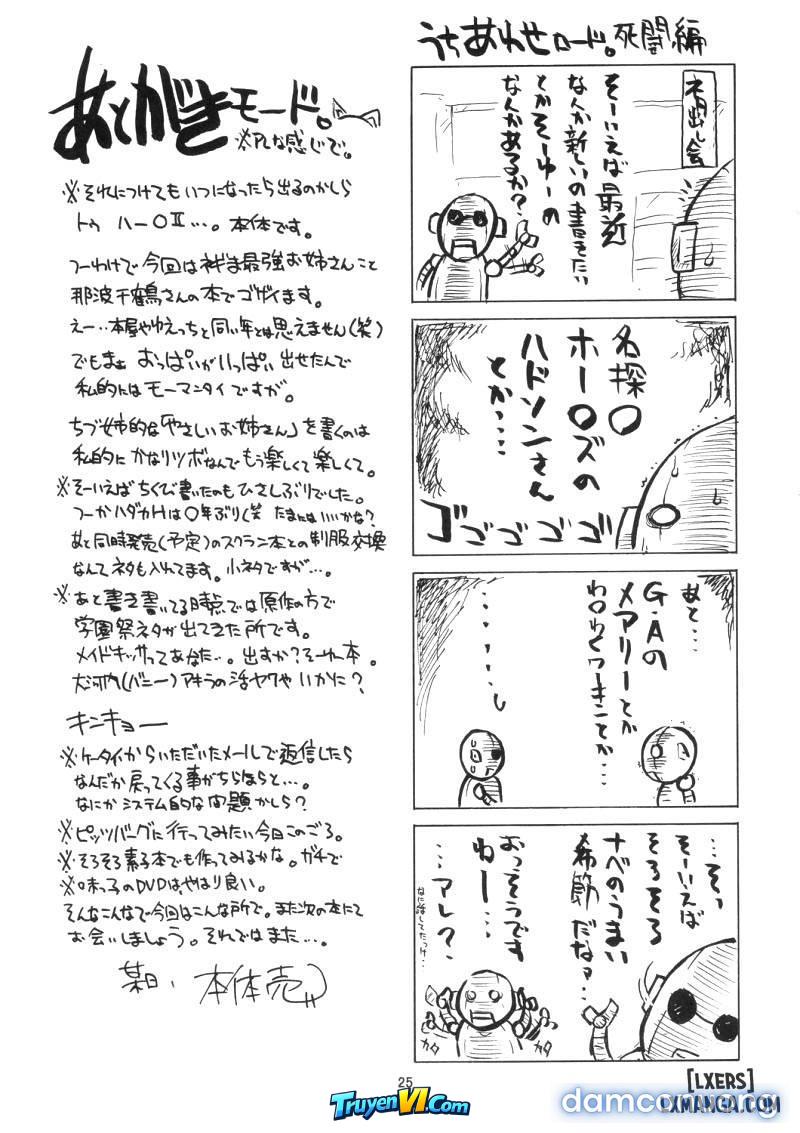 うちあわせロード。死闘編
ネタ出し会
そーいえば最近
なんか新しいの書きたい
とかそーゆーの
なんかあるか?
名探○
ホー○ズの
ハドソンさん
とか・・・・
ゴゴゴゴゴ
あと・・・
G・Aの
メアリーとか
わ○わくワーキンとか・・・
・・・そぅ
そーいえば
そろそろ
ナベのうまい
季節だなァ・・・
おっそうです
ねー・・・
・・・アレ?
なに話してたっけ・・・
カタ
カタ
あとがきモード。
※PLな感じで。
※それにつけてもいつになったら出るのかしら
トゥ ハー○Ⅱ・・・。本体です。
つーわけで今回はネギま最強お姉さんこと
那波千鶴さんの本でゴザイます。
えー・・本屋やゆえっちと同い年とは思えません(笑)
でもまぁ おっぱいがいっぱい出せたんで
私的にはモーマンタイですが。
ちづ姉的な「やさしいお姉さん」を書くのは
私的にかなりツボなんでもう楽しくて楽しくて。
※そーいえばちくび書いたのもひさしぶりでした。
つーかハダカHは○年ぶり(笑 たまにはいいかな?
あと同時発売(予定)のスクラン本との制服交換
なんてネタも入れてます。小ネタですが・・・。
※あと書き書いてる時点では原作の方で
学園祭ネタが出てきた所です。
メイドキッサってあなた・・。出すか?そーゆー本。
大河内(バニー)アキラの活ヤクやいかに?
キンキョー
※ケータイからいただいたメールで返信したら
なんだか戻ってくる事がちらほらと・・・。
なにかシステム的な問題かしら?
※ピッツバーグに行ってみたい今日このごろ。
※そろそろ素子本でも作ってみるかな。ガチで
※味っ子のDVDはやはり良い。
そんなこんなで今回はこんな所で。また次の本にて
お会いしましょう。それではまた・・・。
某日、本体売
25
TruyenVI.Com
[LXERS]
LXMANGA.COM